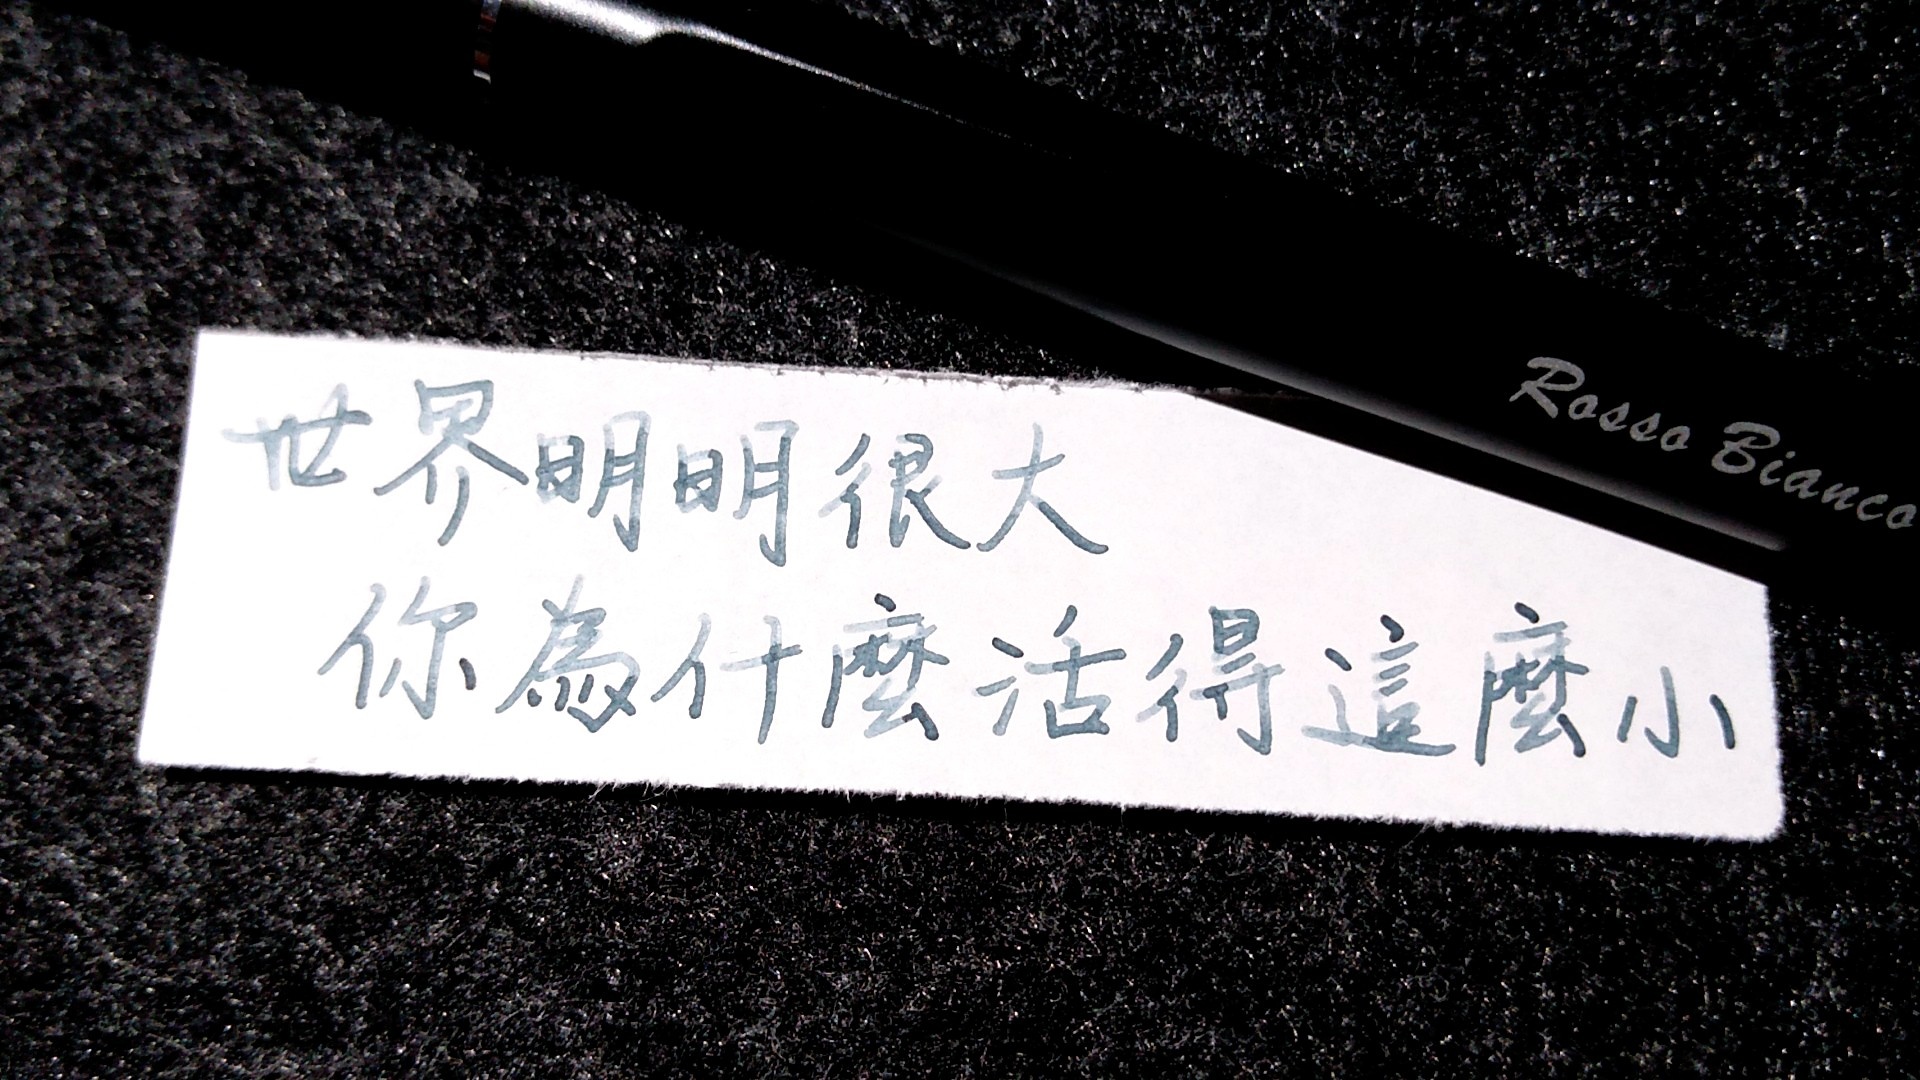 Rosso Bianco
世界明明很大
你為什麼活得這麼小